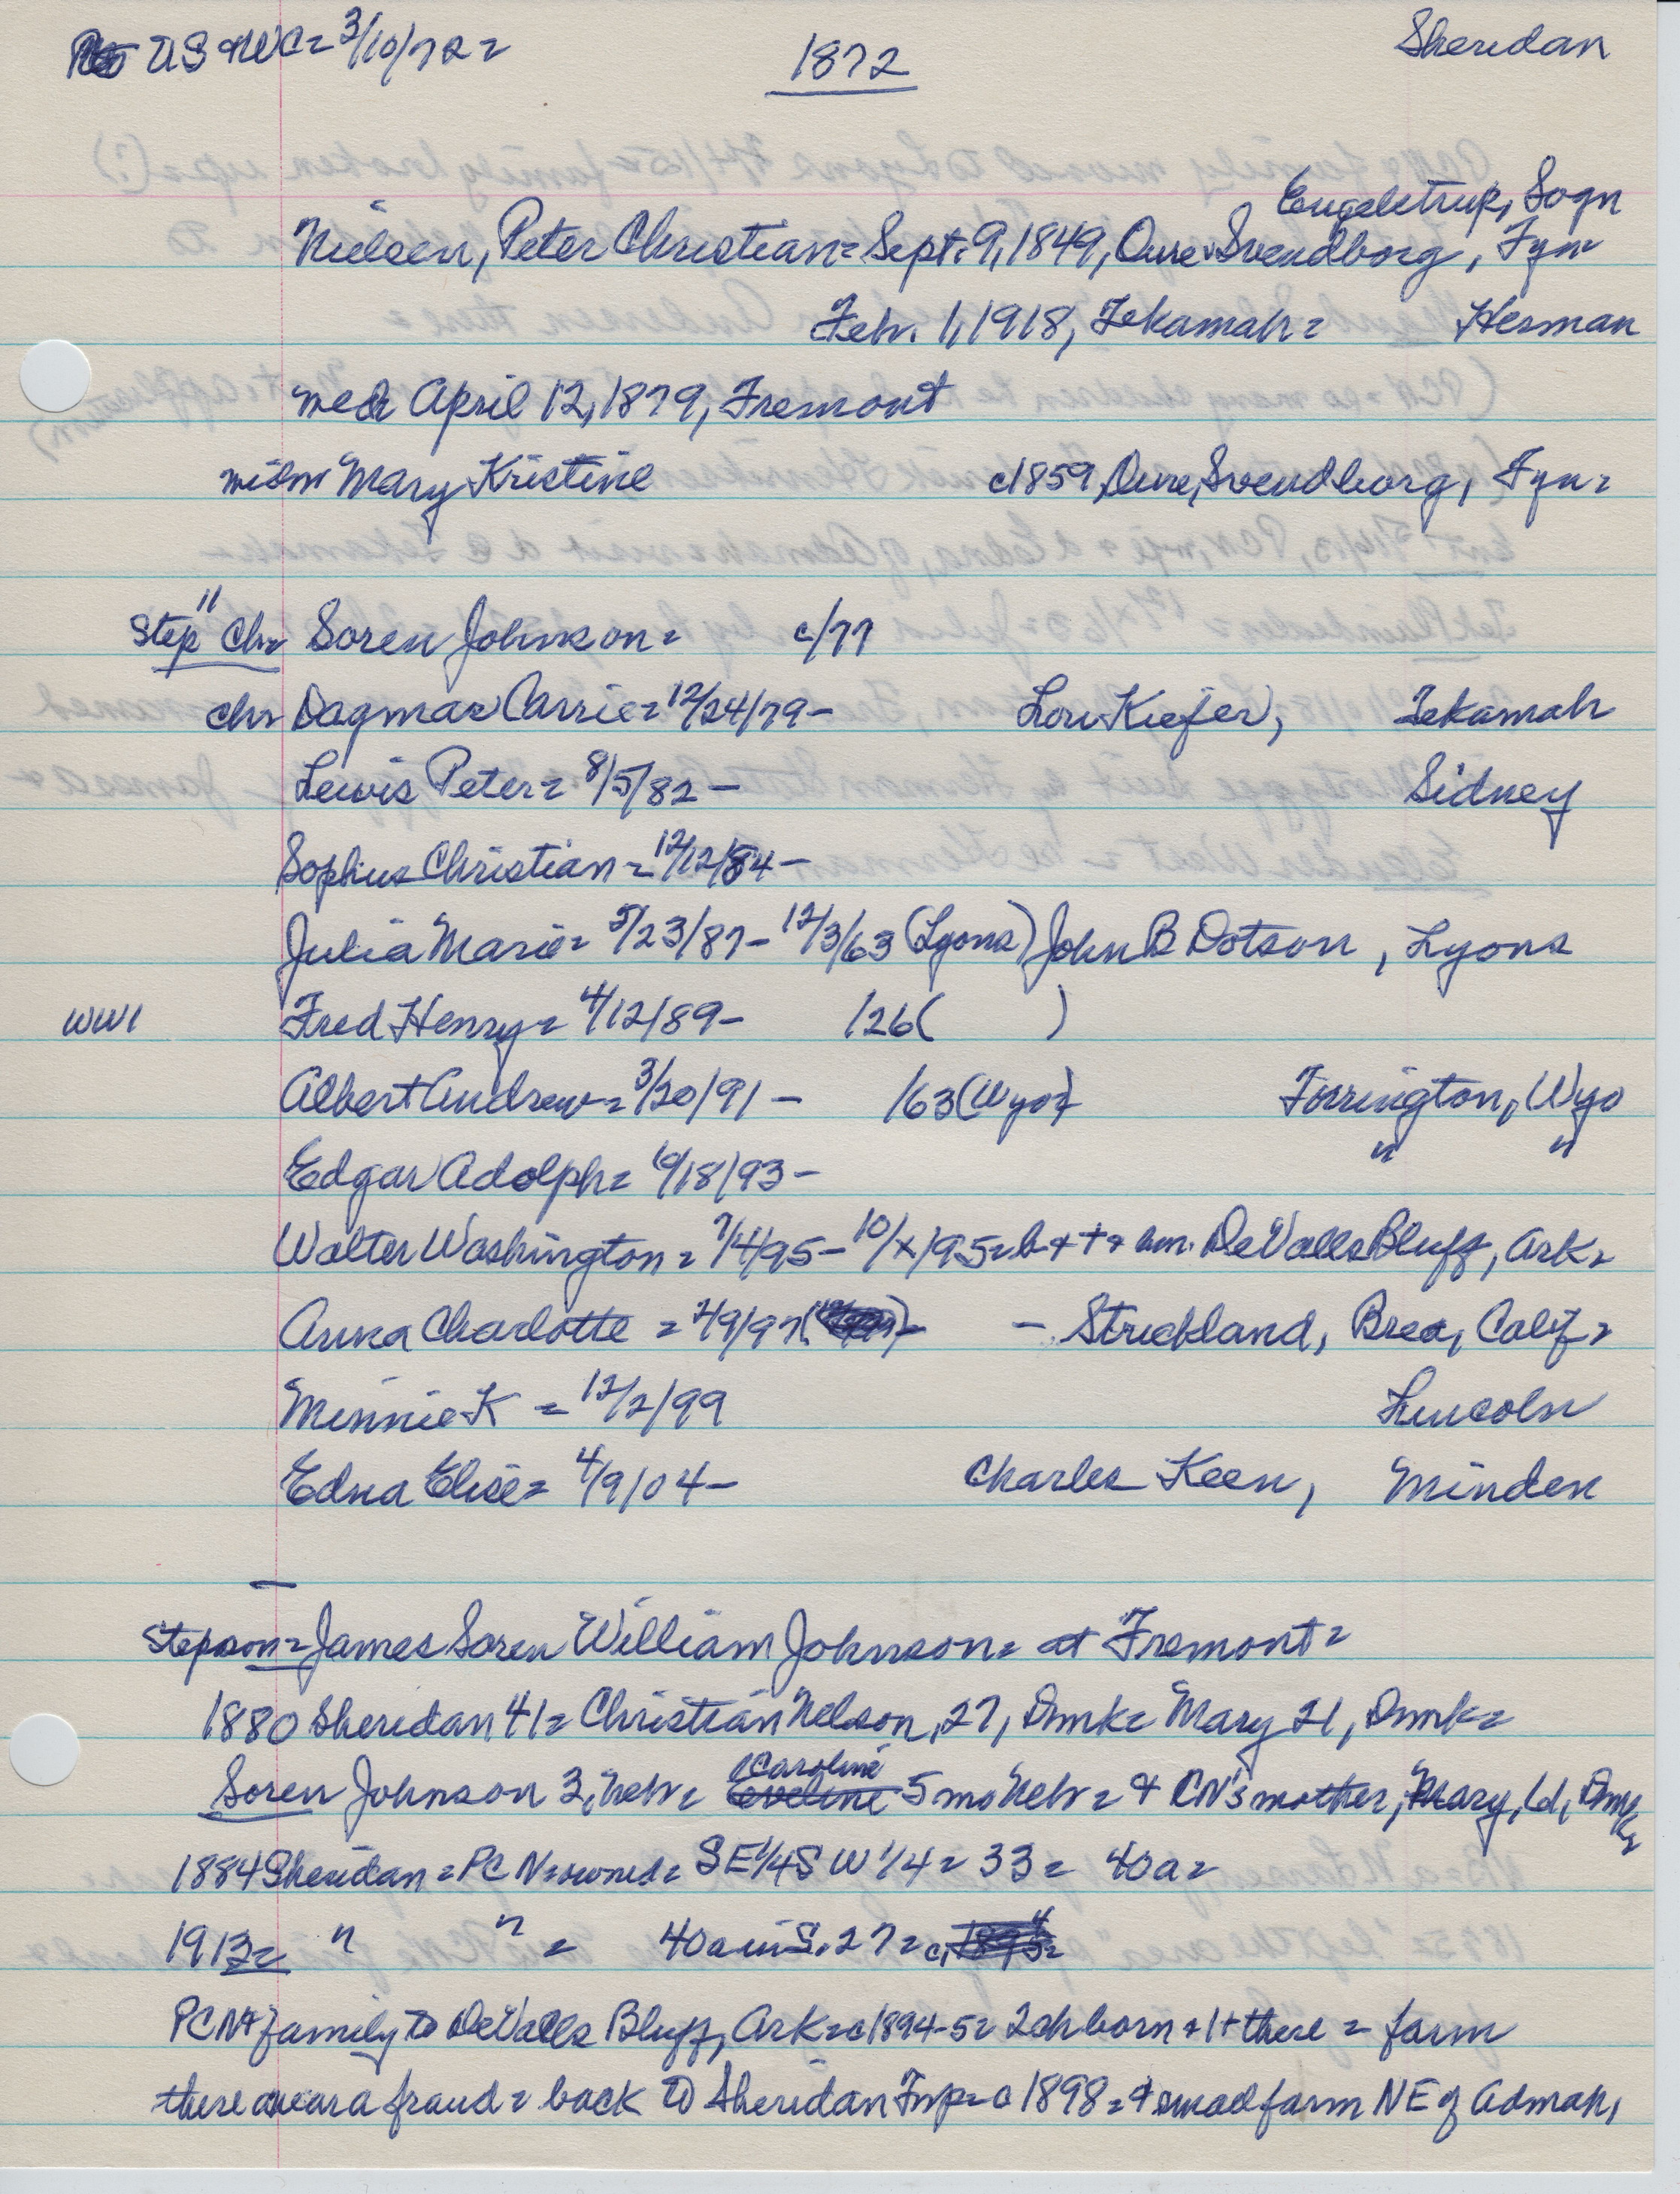 US & WC = 3/10/72 = 1872 Sheridan
Engelstrup, Sogn
Nielsen, Peter Christian = Sept. 9, 1849, Oure, Svendborg, Fyn
Feb. 1, 1918, Tekamah = Herman
md April 12, 1879, Fremont
Mary Kristine c1859, Oure, Svendborg, Fyn =
"
Step Ch = Soren Johnson = c/77
ch = Dagmar Carrie = 12/24/79 - Lou Kiefer, Tekamah
Lewis Peter = 8/5/82 - Sidney
Sophus Christian = 12/12/84 -
Julia Marie = 5/23/87 - 12/3/63 (Lyons) John B Dotson, Lyons
WW1 Fred Henry = 4/12/89 - /26 ( )
Albert Andrew = 3/20/91 - /63 (Wyo) Torrington, Wyo
Edgar Adolph = 10/18/93 - " "
Walter Washington = 7/4/95 - 10/x/95 = b + † + bur. DeValls Bluff, Ark =
Anna Charlotte = 7/9/97 - Strickland, Brea, Calif =
Minnie K = 12/2/99 Lincoln
Edna Elise = 4/9/04 - Charles Keen, Minden
Stepson = James Soren William Johnson = at Fremont =
1880 Sheridan 41 = Christian Nelson, 27, Dmk = Mary 21, Dmk =
Caroline
Soren Johnson 3, Neb = Eveline 5 mo Neb = + CN's mother, Mary, 61, Dmk =
1884 Sheridan = PCN = owned = SE 1/4 SW 1/4 = 33 = 40a =
1913 = " " = 40a in S. 27 =
PCN + family to DeValls Bluff, Ark = c1894-5 = 2 ch born + 1 † there = farm
there was a fraud = back to Sheridan Twp = c 1898 = + small farm NE of Admah,